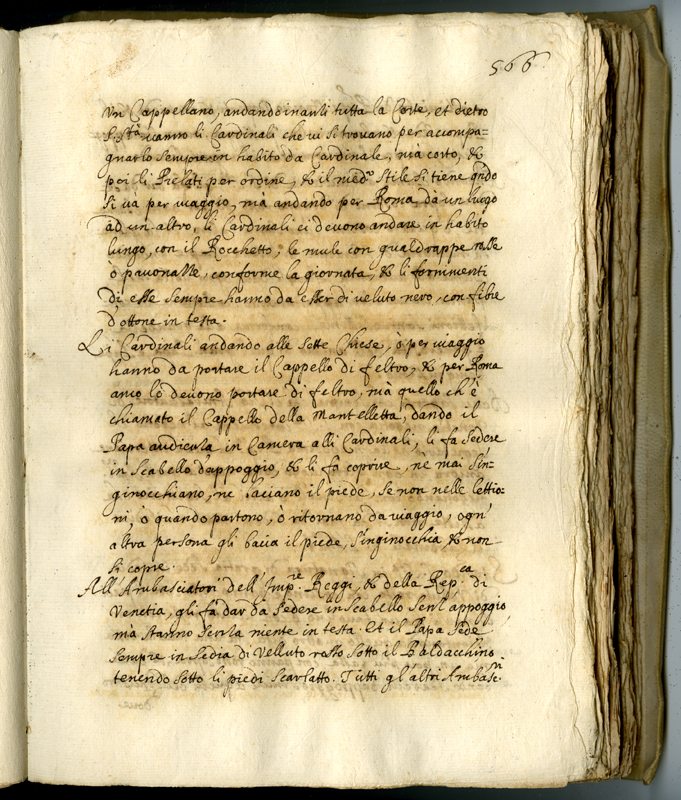 566
Un Cappellano, andando inanti tutta la Corte, et dietro
S. Stà vanno li Cardinali che vi si trovano per accompa=
gnarlo sempre in habito da Cardinale, mà corto, &
poi li Prelati per ordine, & il medo stile si tiene qndo
si và per viaggio, mà andando per Roma da un luogo
ad un altro, li Cardinali ci devono andare in habito
lungo, con il Rocchetto, le mule con gualdrappe rosse
ò pavonasse, conforme la giornata, & li fornimenti
di esse sempre hanno da esser di veluto nero, con fibie
d'ottone in testa.
Li Cardinali andando alle Sette Chiese, ò per viaggio
hanno da portare il Cappello di feltro, & per Roma
anco lo devono portare di feltro, mà quello ch'è
chiamato il Cappello della Mantelletta, dando il
Papa audienza in Camera alli Cardinali, li fà sedere
in scabello d'appoggio, & li fà coprire, nè mai s'in=
ginocchiano, nè baciano il piede, se non nelle lettio=
ni, ò quando partono, ò ritornano da viaggio, ogn'
altra persona gli bacia il piede, s'inginocchia & non
si copre.
All'Ambasciatori dell'Impre Reggi, & della Repca di
Venetia, gli fà dar da sedere in scabello senz'appoggio,
mà stanno senza niente in testa. Et il Papa siede
sempre in sedia di velluto rosso sotto il Baldacchino
tenendo sotto li piedi scarlatto. Tutti gl'altri Ambascri